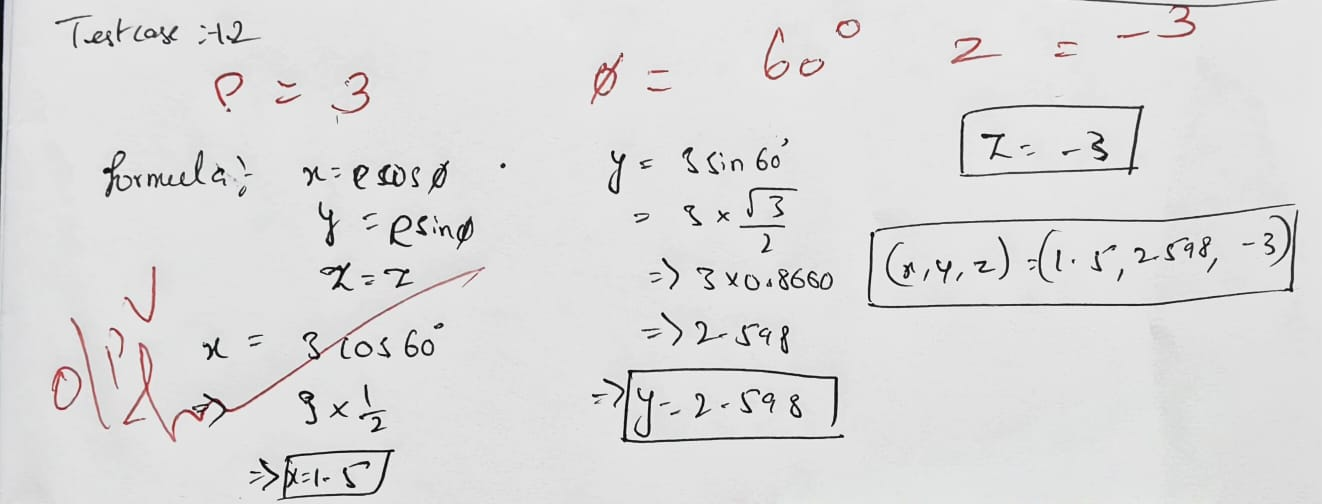 Testcase :-12
ρ = 3
ϕ = 60°
z = -3
formula:- x = ρ cos ϕ
y = ρ sin ϕ
z = z
x = 3 cos 60°
=> 3 × 1/2
=> x = 1.5
y = 3 sin 60°
= 3 × √3/2
=> 3 × 0.8660
=> 2.598
=> y = 2.598
z = -3
(x, y, z) = (1.5, 2.598, -3)